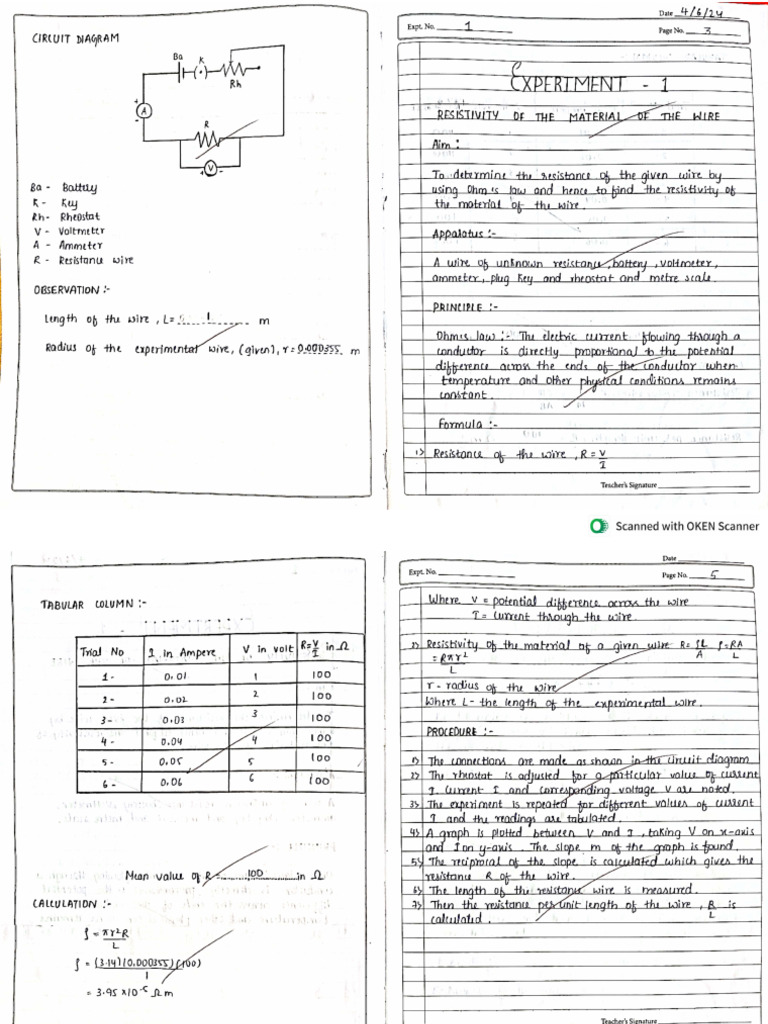 CIRCUIT DIAGRAM
Ba
K
Rh
+
A
-
R
+
V
-
Ba - Battery
K - Key
Rh - Rheostat
V - Voltmeter
A - Ammeter
R - Resistance wire
OBSERVATION :-
Length of the wire, L= 1 m
Radius of the experimental wire, (given), r = 0.000355 m
Date 4/6/24
Expt. No. 1
Page No. 3
EXPERIMENT - 1
RESISTIVITY OF THE MATERIAL OF THE WIRE
Aim :
To determine the resistance of the given wire by
using Ohm's law and hence to find the resistivity of
the material of the wire.
Apparatus :-
A wire of unknown resistance, battery, voltmeter,
ammeter, plug Key and rheostat and metre scale.
PRINCIPLE :-
Ohm's law :- The electric current flowing through a
conductor is directly proportional to the potential
difference across the ends of the conductor when
temperature and other physical conditions remains
constant.
Formula :-
1) Resistance of the wire, R = V/I
Teacher's Signature
Scanned with OKEN Scanner
TABULAR COLUMN :-
Trial No I in Ampere V in volt R=V/I in Ω
1- 0.01 1 100
2- 0.02 2 100
3- 0.03 3 100
4- 0.04 4 100
5- 0.05 5 100
6- 0.06 6 100
Mean value of R = 100 in Ω
CALCULATION :-
ρ = πr²R/L
ρ = (3.14)(0.000355)(100)/1
= 3.95 x10⁻⁵ Ωm
Date
Expt. No.
Page No. 5
Where V = potential difference across the wire
I = Current through the wire.
2) Resistivity of the material of a given wire R = ρL/A ρ = RA/L
= Rπr²/L
r - radius of the wire
Where L - the length of the experimental wire.
PROCEDURE :-
1) The connections are made as shown in the circuit diagram
2) The rheostat is adjusted for a particular value of current
I. Current I and corresponding voltage V are noted.
3) The experiment is repeated for different values of current
I and the readings are tabulated.
4) A graph is plotted between V and I, taking V on x-axis
and I on y-axis. The slope m of the graph is found.
5) The reciprocal of the slope is calculated which gives the
resistance R of the wire.
6) The length of the resistance wire is measured.
7) Then the resistance per unit length of the wire, R/L is
calculated.
Teacher's Signature